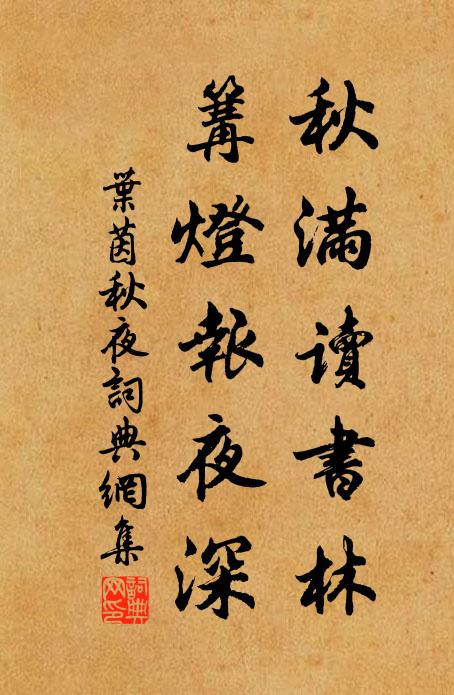 秋滿讀書林
篝燈報夜深
葉茵秋夜詞典網集
詞典
网印